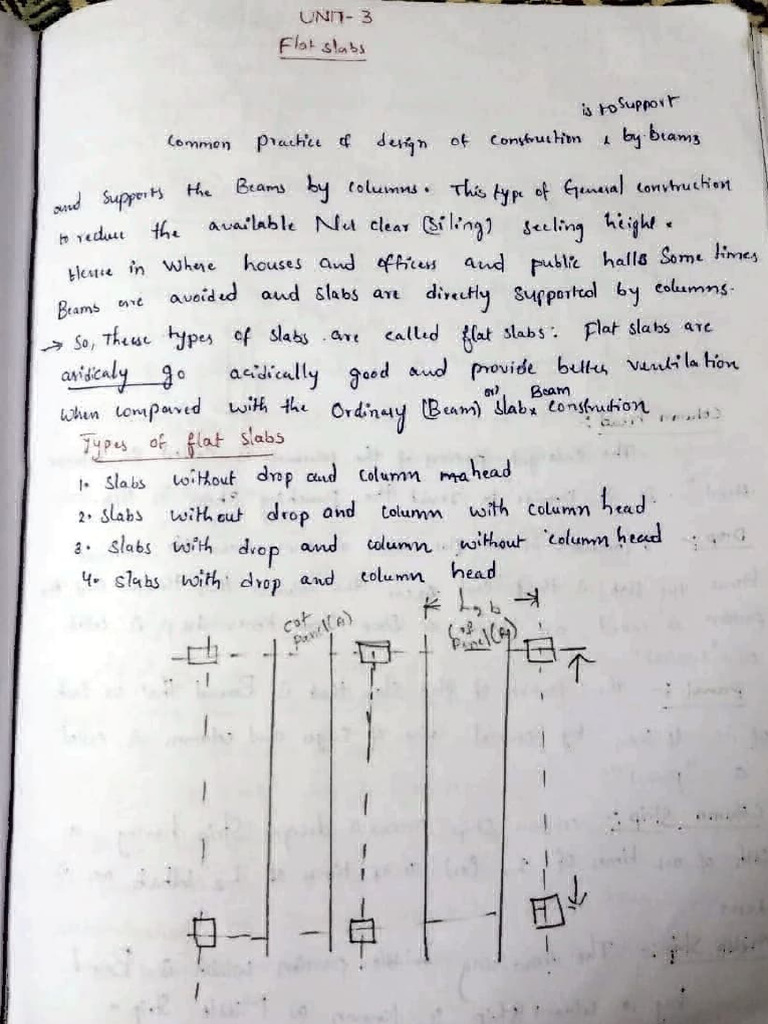 UNIT-3
Flat slabs
is to support
Common practice of design of construction & by beams
and supports the Beams by columns. This type of General construction
to reduce the available Net clear (Siling) seeling height.
Hence in Where houses and officers and public halls Some times
Beams are avoided and slabs are directly supported by columns.
→ So, These types of slabs are called flat slabs: Flat slabs are
asidicaly go acidically good and provide better ventilation
when compared with the Ordinary (Beam) slabx or) Beam constrution
Types of flat slabs
1. slabs without drop and column head
2. slabs without drop and column with column head
3. slabs with drop and column without column head
4. slabs with drop and column head
L2 b
panel(A)
panel(B)